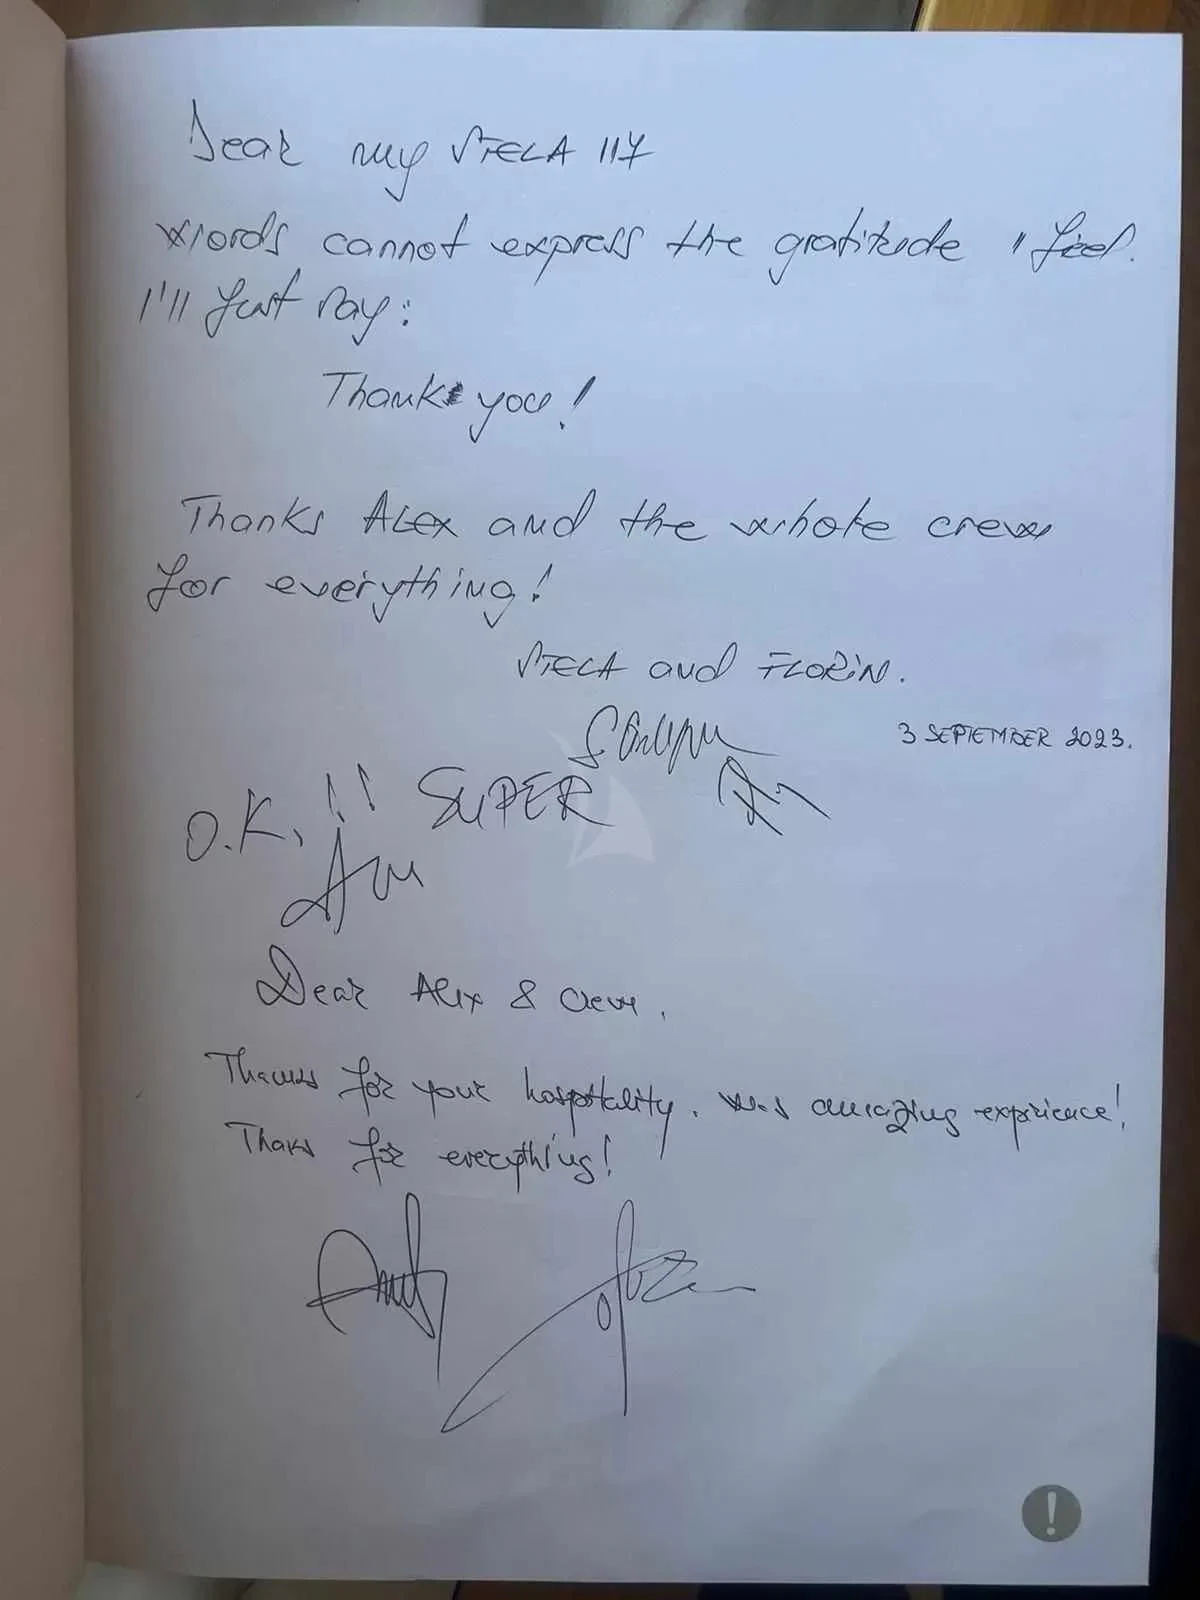 Dear my STELA 117
words cannot express the gratitude I feel.
I'll just say:
Thank you!
Thanks ALEX and the whole crew
for everything!
STELA and FLORIN.
3 SEPTEMBER 2023.
O.K. !! SUPER
Dear Alex & Crew,
Thanks for your hospitality. Was amazing experience!
Thanks for everything!